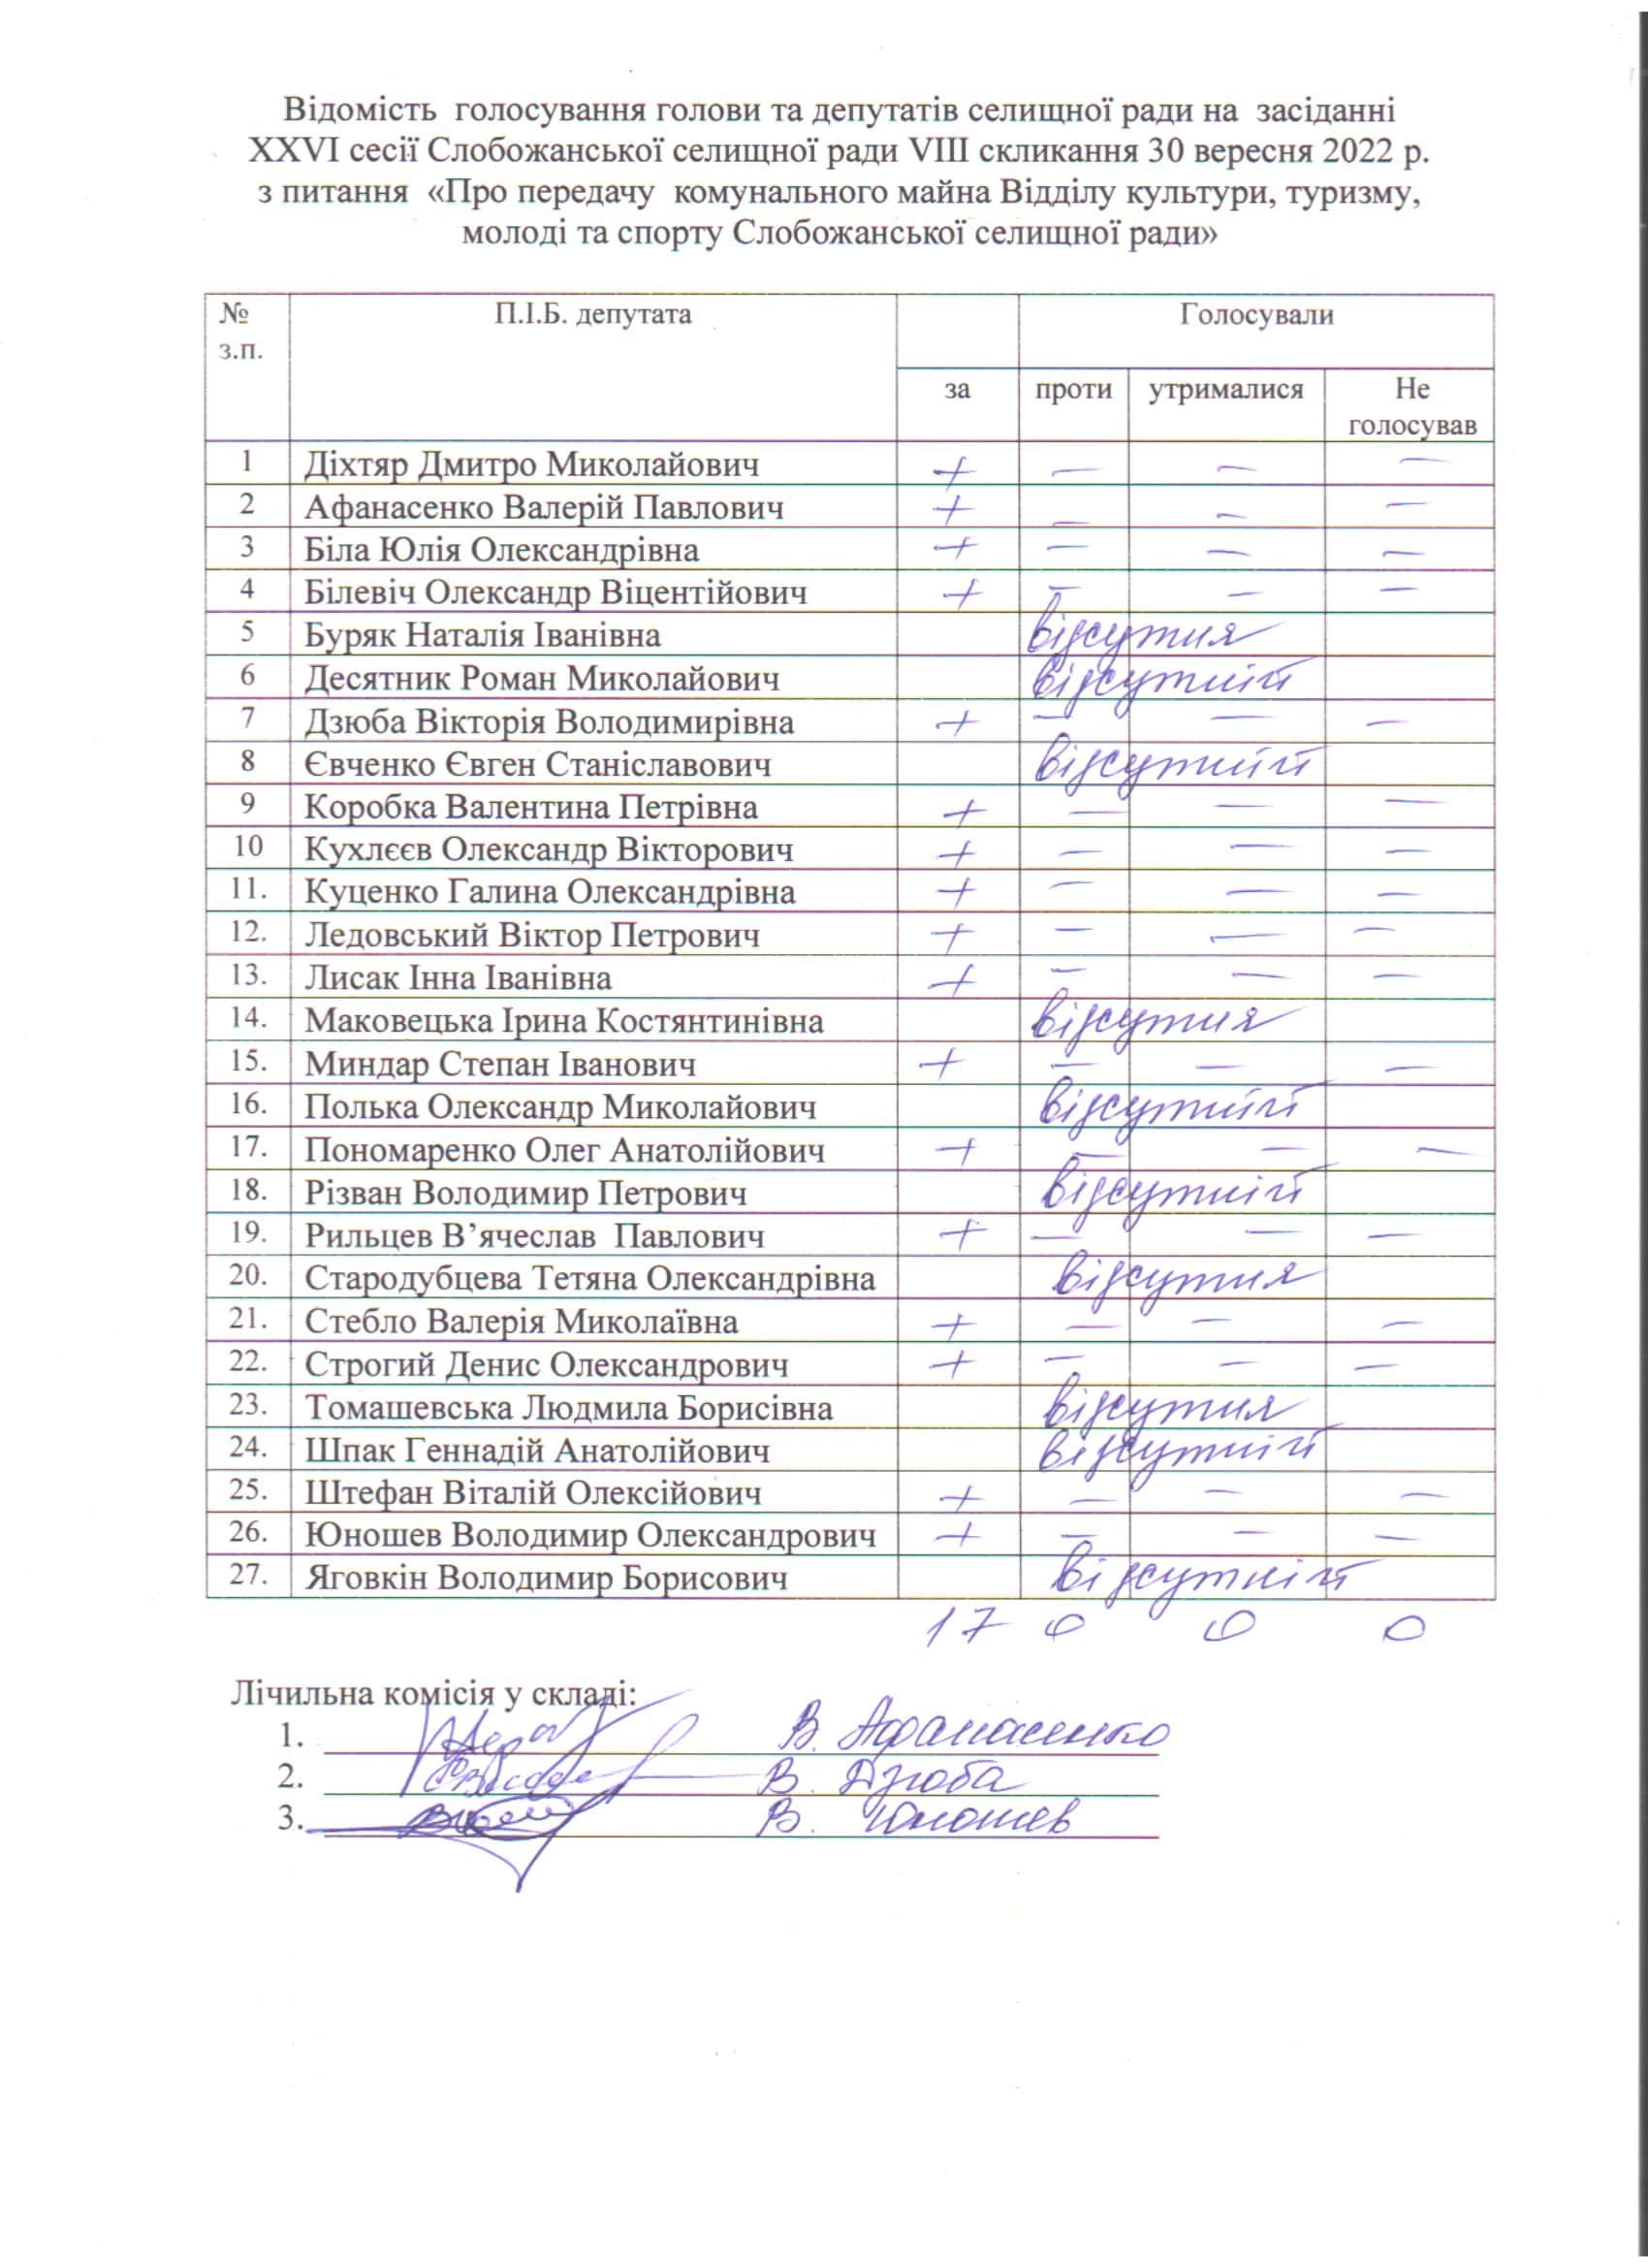 Відомість голосування голови та депутатів селищної ради на засіданні
XXVI сесії Слобожанської селищної ради VIII скликання 30 вересня 2022 р.
з питання «Про передачу комунального майна Відділу культури, туризму,
молоді та спорту Слобожанської селищної ради»
№ з.п. П.І.Б. депутата Голосували
за проти утрималися Не голосував
1 Діхтяр Дмитро Миколайович + – – –
2 Афанасенко Валерій Павлович + – – –
3 Біла Юлія Олександрівна + – – –
4 Білевіч Олександр Віцентійович + – – –
5 Буряк Наталія Іванівна відсутня
6 Десятник Роман Миколайович відсутній
7 Дзюба Вікторія Володимирівна + – – –
8 Євченко Євген Станіславович відсутній
9 Коробка Валентина Петрівна + – – –
10 Кухлєєв Олександр Вікторович + – – –
11. Куценко Галина Олександрівна + – – –
12. Ледовський Віктор Петрович + – – –
13. Лисак Інна Іванівна + – – –
14. Маковецька Ірина Костянтинівна відсутня
15. Миндар Степан Іванович + – – –
16. Полька Олександр Миколайович відсутній
17. Пономаренко Олег Анатолійович + – – –
18. Різван Володимир Петрович відсутній
19. Рильцев В’ячеслав Павлович + – – –
20. Стародубцева Тетяна Олександрівна відсутня
21. Стебло Валерія Миколаївна + – – –
22. Строгий Денис Олександрович + – – –
23. Томашевська Людмила Борисівна відсутня
24. Шпак Геннадій Анатолійович відсутній
25. Штефан Віталій Олексійович + – – –
26. Юношев Володимир Олександрович + – – –
27. Яговкін Володимир Борисович відсутній
17 0 0 0
Лічильна комісія у складі:
1. В. Афанасенко
2. В. Дзюба
3. В. Юношев